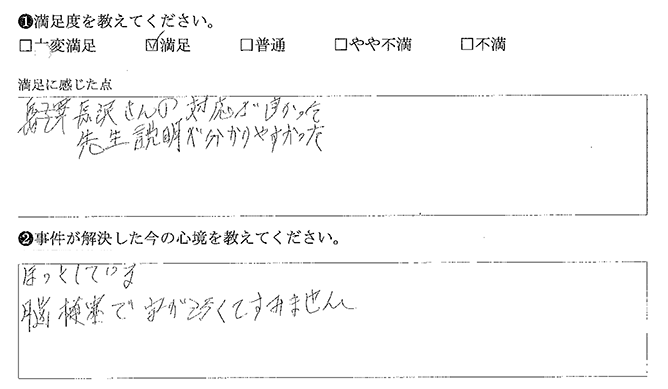 ❶満足度を教えてください。
□大変満足 ☑満足 □普通 □やや不満 □不満
満足に感じた点
長沢さんの対応が良かった
先生説明が分かりやすかった
❷事件が解決した今の心境を教えてください。
ほっとしている
脳梗塞で字が汚くてすみません